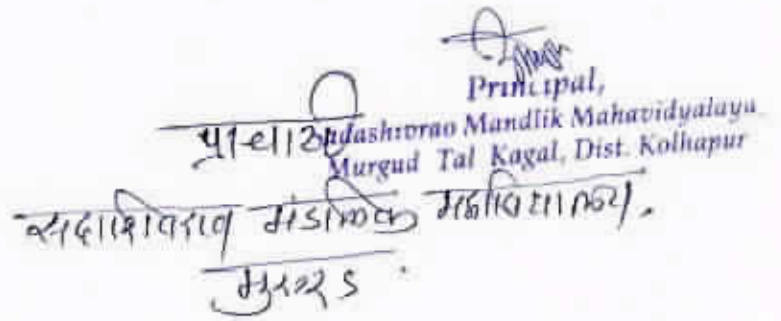 Principal,
Sadashivrao Mandlik Mahavidyalaya
Murgud Tal Kagal, Dist. Kolhapur
प्राचार्य
सदाशिवराव मंडलिक महाविद्यालय.
मुरगूड.